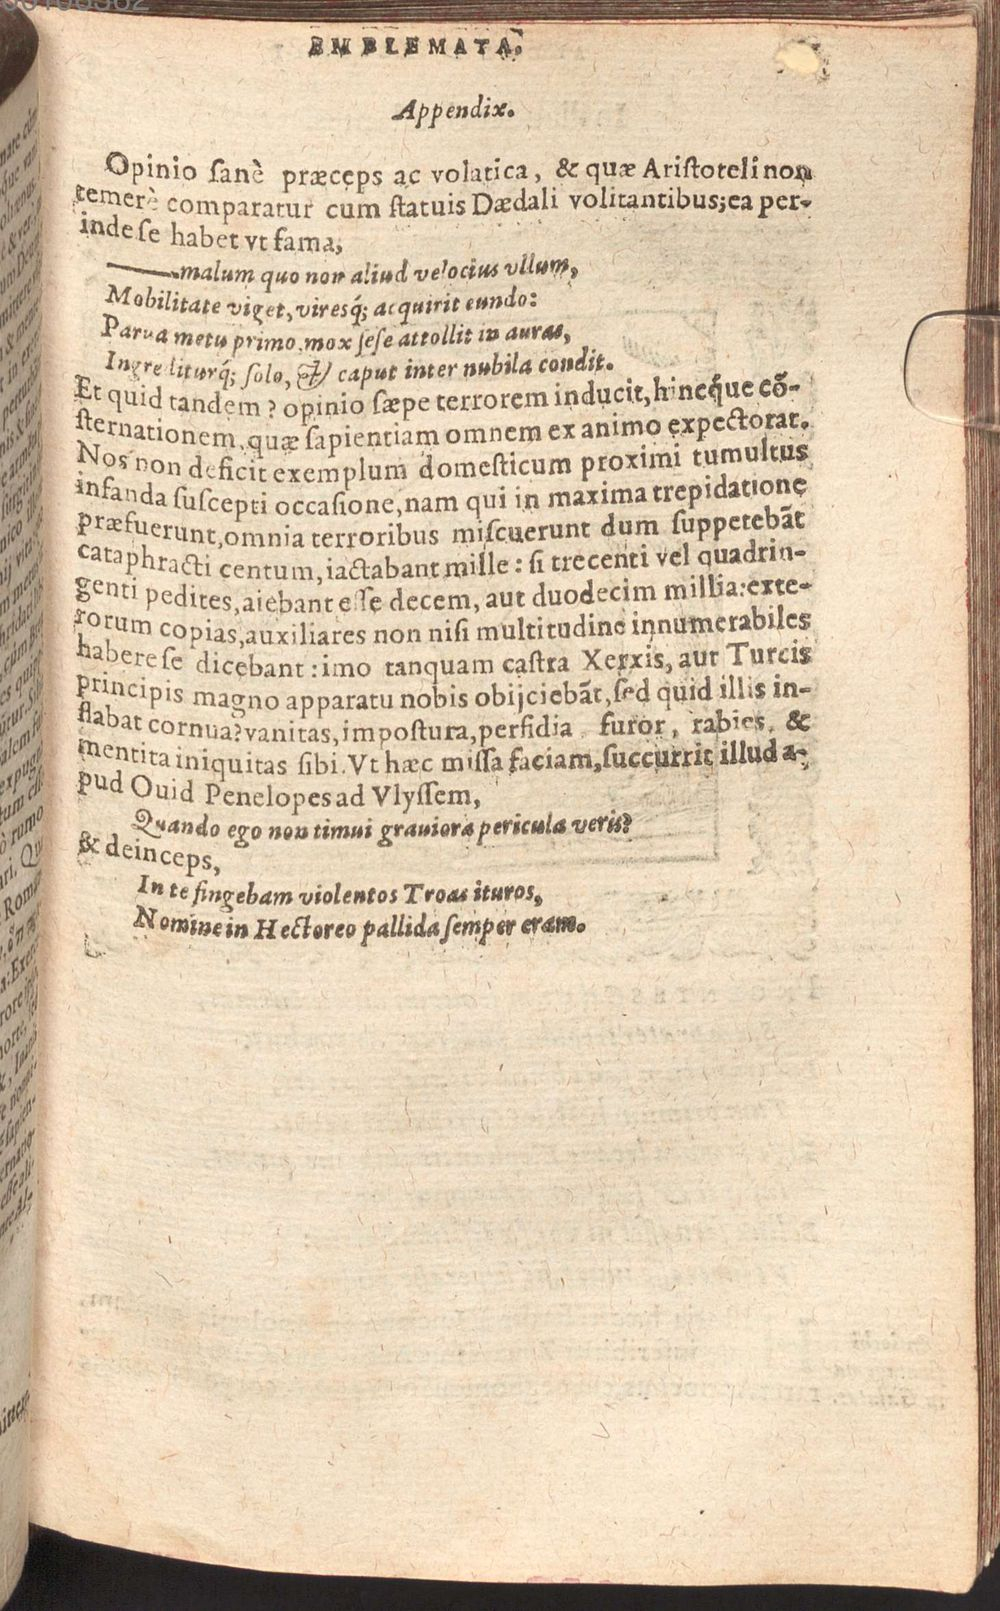 EMBLEMATA.
Appendix.
Opinio sanè præceps ac volatica, & quæ Aristoteli non
temerè comparatur cum statuis Dædali volitantibus; ea per-
inde se habet vt fama,
——malum quo non aliud velocius vllum,
Mobilitate viget, viresq́; acquirit eundo:
Parua metu primo, mox sese attollit in auras,
Ingrediturq́; solo, & caput inter nubila condit.
Et quid tandem? opinio sæpe terrorem inducit, hincq́ue cō-
sternationem, quæ sapientiam omnem ex animo expectorat.
Nos non deficit exemplum domesticum proximi tumultus
infanda suscepti occasione, nam qui in maxima trepidatione
præfuerunt, omnia terroribus miscuerunt dum suppetebāt
cataphracti centum, iactabant mille: si trecenti vel quadrin-
genti pedites, aiebant esse decem, aut duodecim millia: exte-
rorum copias, auxiliares non nisi multitudine innumerabiles
habere se dicebant: imo tanquam castra Xerxis, aut Turcis
principis magno apparatu nobis obijciebāt, sed quid illis in-
flabat cornua? vanitas, impostura, perfidia, furor, rabies, &
mentita iniquitas sibi. Vt hæc missa faciam, succurrit illud a-
pud Ouid Penelopes ad Vlyssem,
Quando ego non timui grauiora pericula veris?
& deinceps,
In te fingebam violentos Troas ituros,
Nomine in Hectoreo pallida semper eram.